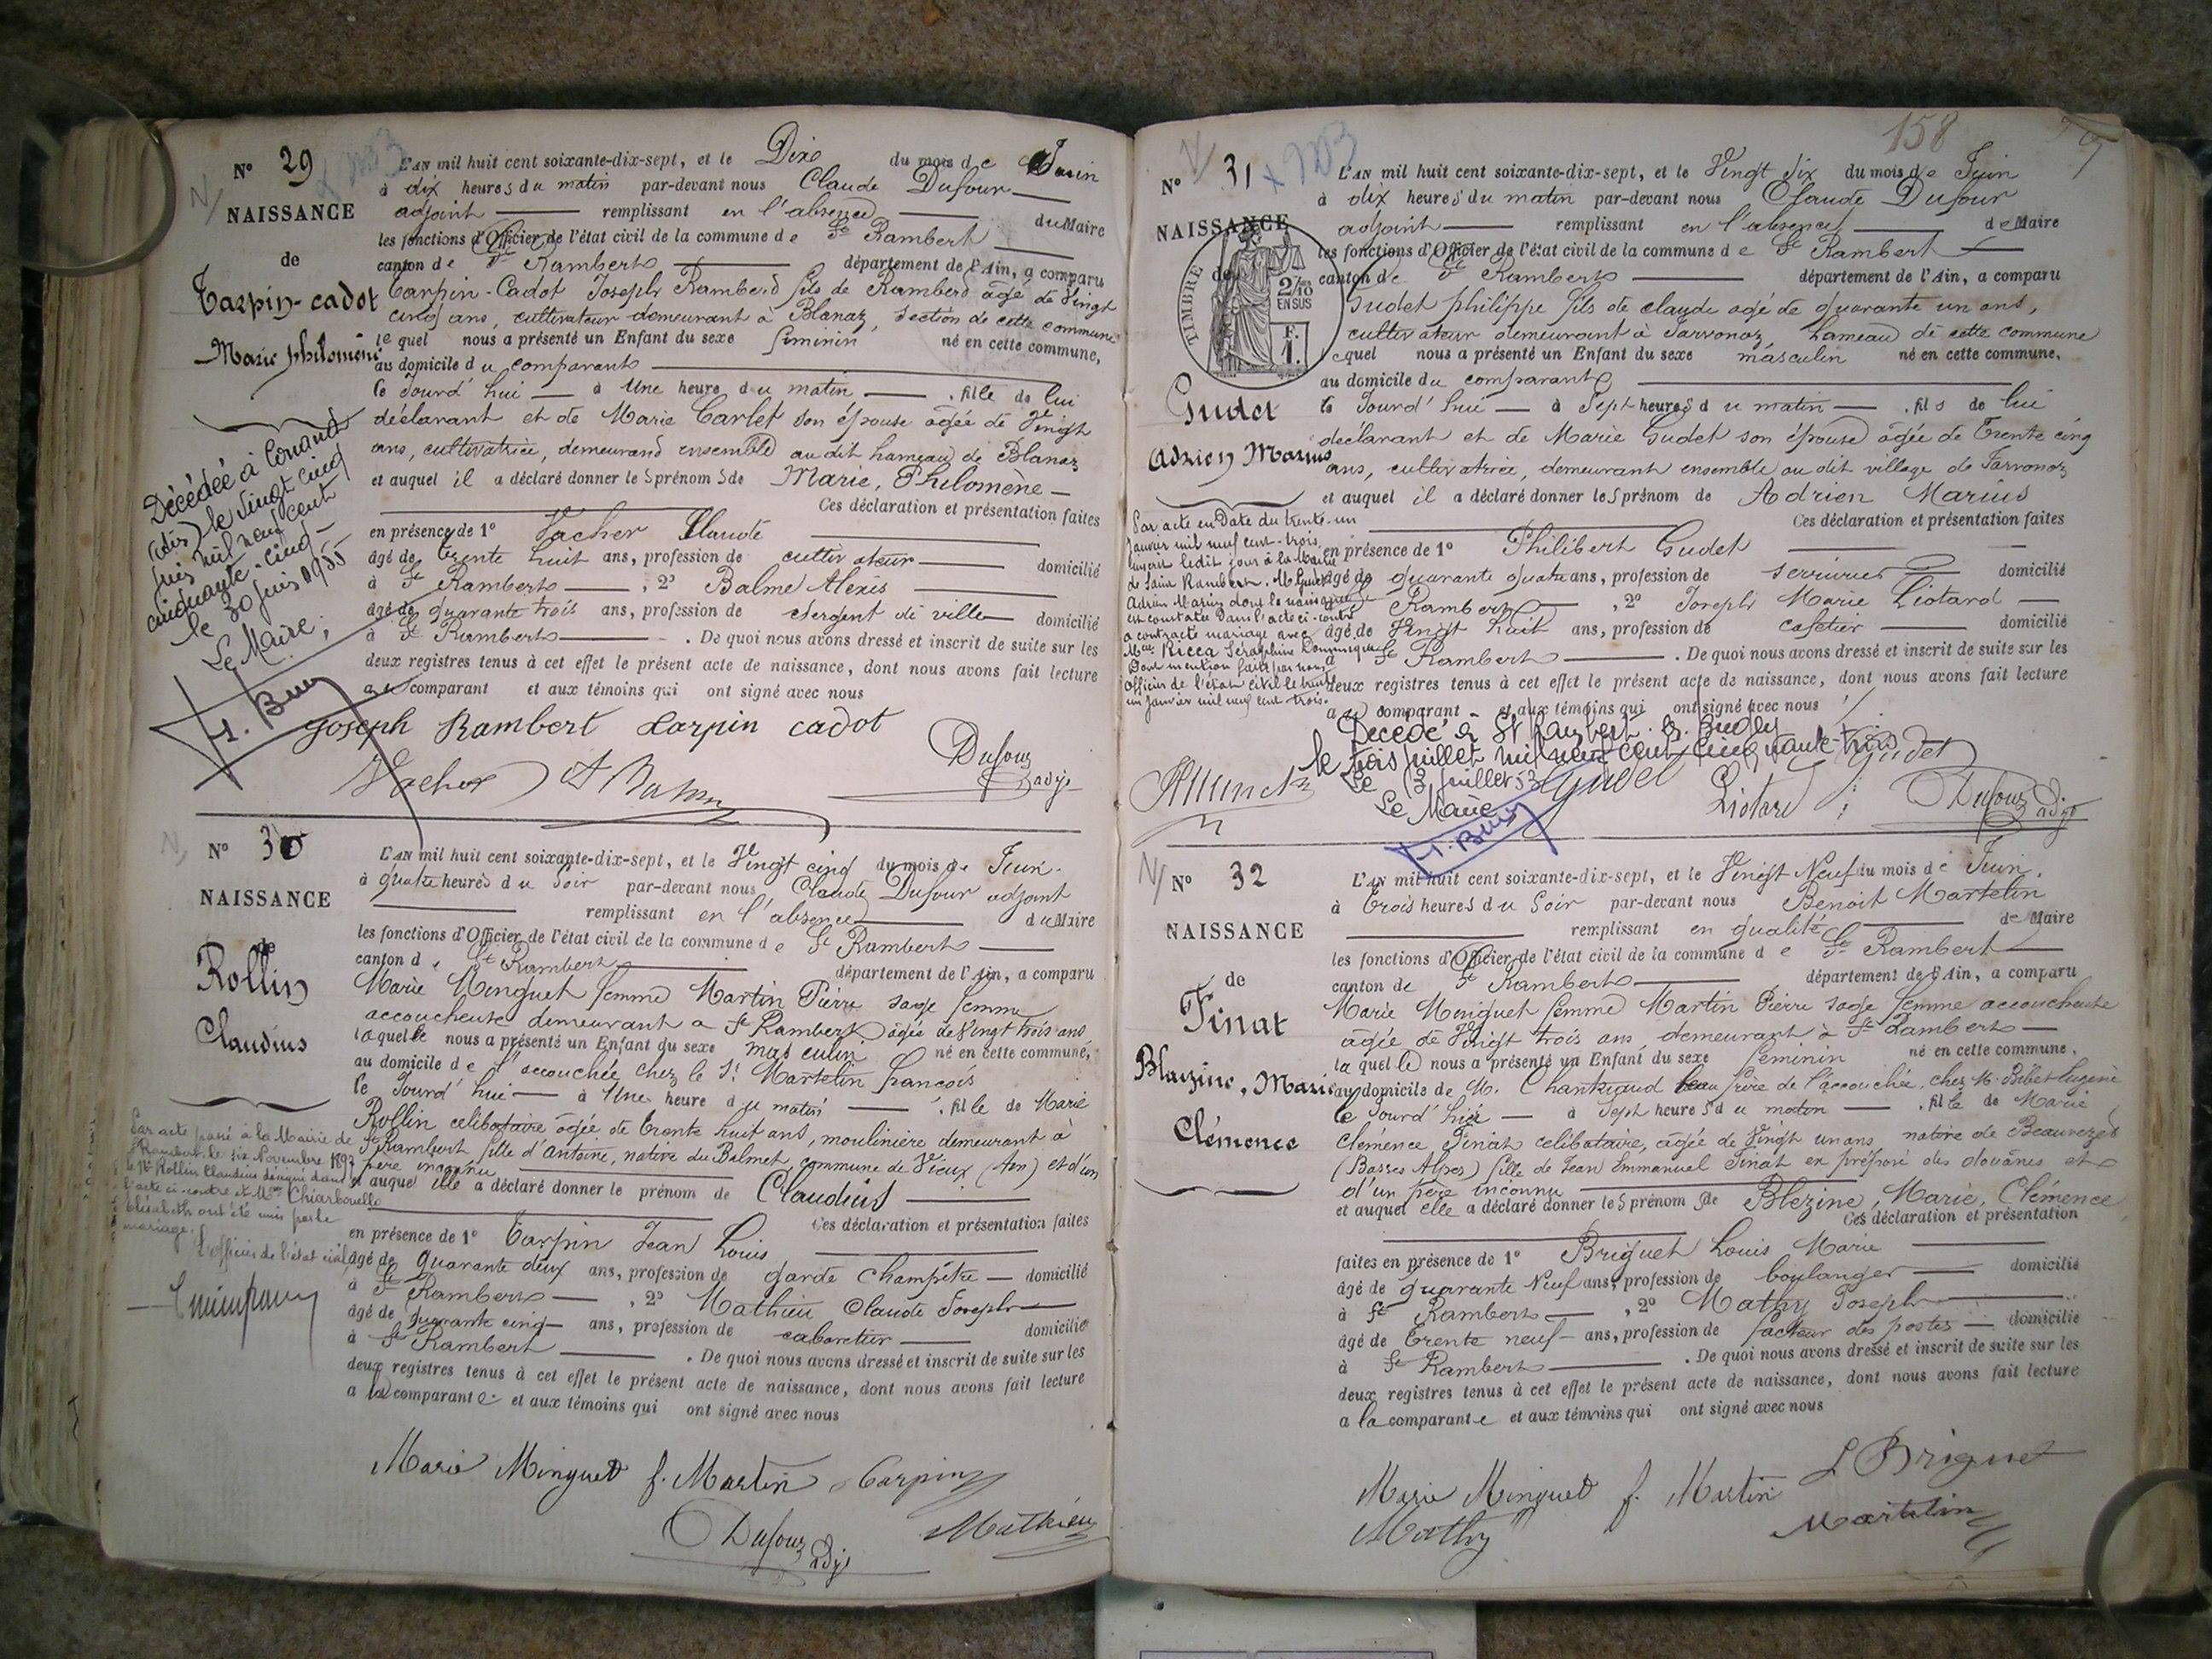 N° 29
NAISSANCE
de
Tarpin-cadot
Marie philomène
Décédée à Conand
(Ain) le vingt cinq
juin mil neuf cent
cinquante-cinq -
le 30 juin 1955
Le Maire,
L'AN mil huit cent soixante-dix-sept, et le Dix du mois de Juin
à dix heures du matin par-devant nous Claude Dufour
adjoint remplissant en l'absence du Maire
les fonctions d'Officier de l'état civil de la commune de St Rambert
canton de St Rambert département de l'Ain, a comparu
Tarpin-Cadot Joseph Rambert fils de Rambert âgé de Vingt
cinq ans, cultivateur demeurant à Blanaz, section de cette commune
lequel nous a présenté un Enfant du sexe féminin né en cette commune,
au domicile du comparant
le Jourd'hui à Une heure du matin, fille de lui
déclarant et de Marie Carlet son épouse âgée de Vingt
ans, cultivatrice, demeurand ensemble au dit hameau de Blanaz
et auquel il a déclaré donner les prénoms de Marie, Philomène
Ces déclaration et présentation faites
en présence de 1° Vacher Claude
âgé de trente huit ans, profession de cultivateur domicilié
à St Rambert, 2° Balme Alexis
âgé de quarante trois ans, profession de Sergent de ville domicilié
à St Rambert. De quoi nous avons dressé et inscrit de suite sur les
deux registres tenus à cet effet le présent acte de naissance, dont nous avons fait lecture
au comparant et aux témoins qui ont signé avec nous
joseph Rambert tarpin cadot
Vacher
Dufour adjt
N° 30
NAISSANCE
de
Rollin
Claudius
Par acte passé à la Mairie de
St Rambert le six Novembre 1897
le Sr Rollin Claudius désigné dans
l'acte ci-contre et Mlle Chiarbonello
Elisabeth ont été unis par le
mariage.
L'officier de l'état civil,
L'AN mil huit cent soixante-dix-sept, et le Vingt cinq du mois de Juin
à quatre heures du Soir par-devant nous Claude Dufour adjoint
remplissant en l'absence du Maire
les fonctions d'Officier de l'état civil de la commune de St Rambert
canton de St Rambert département de l'Ain, a comparu
Marie Minguet femme Martin Pierre sage femme
accoucheuse demeurant à St Rambert âgée de Vingt trois ans
laquelle nous a présenté un Enfant du sexe masculin né en cette commune,
au domicile de l'accouchée chez le Sr Martelin françois
le Jourd'hui à Une heure du matin, fille de Marie
Rollin celibataire âgée de trente huit ans, moulinière demeurant à
St Rambert fille d'Antoine, native du Balmet, commune de Vieux (Ain) et d'un
père inconnu
et auquel elle a déclaré donner le prénom de Claudius
Ces déclaration et présentation faites
en présence de 1° Tarpin Jean Louis
âgé de quarante deux ans, profession de garde champêtre domicilié
à St Rambert, 2° Mathieu Claude Joseph
âgé de quarante cinq ans, profession de cabaretier domicilié
à St Rambert. De quoi nous avons dressé et inscrit de suite sur les
deux registres tenus à cet effet le présent acte de naissance, dont nous avons fait lecture
a la comparante et aux témoins qui ont signé avec nous
Marie Minguet f. Martin Tarpin
Dufour adjt Mathieu
158
N° 31
NAISSANCE
de
TIMBRE
2/10
EN SUS
F.
1.
Gudet
Adrien Marius
Par acte en Date du trente-un
Janvier mil neuf cent-trois
de Saint Rambert. M. Gudet
Adrien Marius dont la naissance
est constatée dans l'acte ci-contre
a contracté mariage avec
Mlle Ricca Séraphine Dominique
Dont mention faite par nous
officier de l'état civil le trente
un janvier mil neuf cent-trois.
L'AN mil huit cent soixante-dix-sept, et le Vingt Six du mois de Juin
à dix heures du matin par-devant nous Claude Dufour
adjoint remplissant en l'absence de Maire
les fonctions d'Officier de l'état civil de la commune de St Rambert
canton de St Rambert département de l'Ain, a comparu
Gudet philippe fils de claude agé de quarante un ans,
cultivateur demeurant à Javornoz, hameau de cette commune
lequel nous a présenté un Enfant du sexe masculin né en cette commune,
au domicile du comparant
le Jourd'hui à Sept heures du matin, fils de lui
declarant et de Marie Gudet son épouse âgée de Trente cinq
ans, cultivatrice, demeurant ensemble au dit village de Javornoz
et auquel il a déclaré donner les prénom de Adrien Marius
Ces déclaration et présentation faites
en présence de 1° Philibert Gudet
âgé de quarante quatre ans, profession de serrurier domicilié
à St Rambert, 2° Joseph Marie Liotard
âgé de Vingt huit ans, profession de cafetier domicilié
à St Rambert. De quoi nous avons dressé et inscrit de suite sur les
deux registres tenus à cet effet le présent acte de naissance, dont nous avons fait lecture
au comparant et aux témoins qui ont signé avec nous
Décédé à St Rambert en Bugey
le trois juillet mil neuf cent cinquante-trois
Le 3 juillet 53
Le Maire
Gudet
Gudet
Liotard
Dufour adjt
N° 32
NAISSANCE
de
Finat
Blaizine, Marie
Clémence
L'AN mil huit cent soixante-dix-sept, et le Vingt Neuf du mois de Juin.
à trois heures du Soir par-devant nous Benoit Martelin
remplissant en qualité de Maire
les fonctions d'Officier de l'état civil de la commune de St Rambert
canton de St Rambert département de l'Ain, a comparu
Marie Minguet femme Martin Pierre sage femme accoucheuse
âgée de Vingt trois ans, demeurant à St Rambert
laquelle nous a présenté un Enfant du sexe féminin né en cette commune,
au domicile de M. beau frère de l'accouchée, chez M.
le Jourd'hui à Sept heures du matin, fille de Marie
Clemence Finat celibataire, âgée de Vingt un ans, native de Beauvezet
(Basses Alpes) fille de Jean Emmanuel Finat ex préposé des douanes et
d'un père inconnu
et auquel elle a déclaré donner les prénom de Blezine, Marie, Clémence
Ces déclaration et présentation
faites en présence de 1° Briguet Louis Marie
âgé de quarante Neuf ans, profession de boulanger domicilié
à St Rambert, 2° Mathy Joseph
âgé de trente neuf ans, profession de facteur des postes domicilié
à St Rambert. De quoi nous avons dressé et inscrit de suite sur les
deux registres tenus à cet effet le présent acte de naissance, dont nous avons fait lecture
a la comparante et aux témoins qui ont signé avec nous
Marie Minguet f. Martin L Briguet
Mathy Martelin